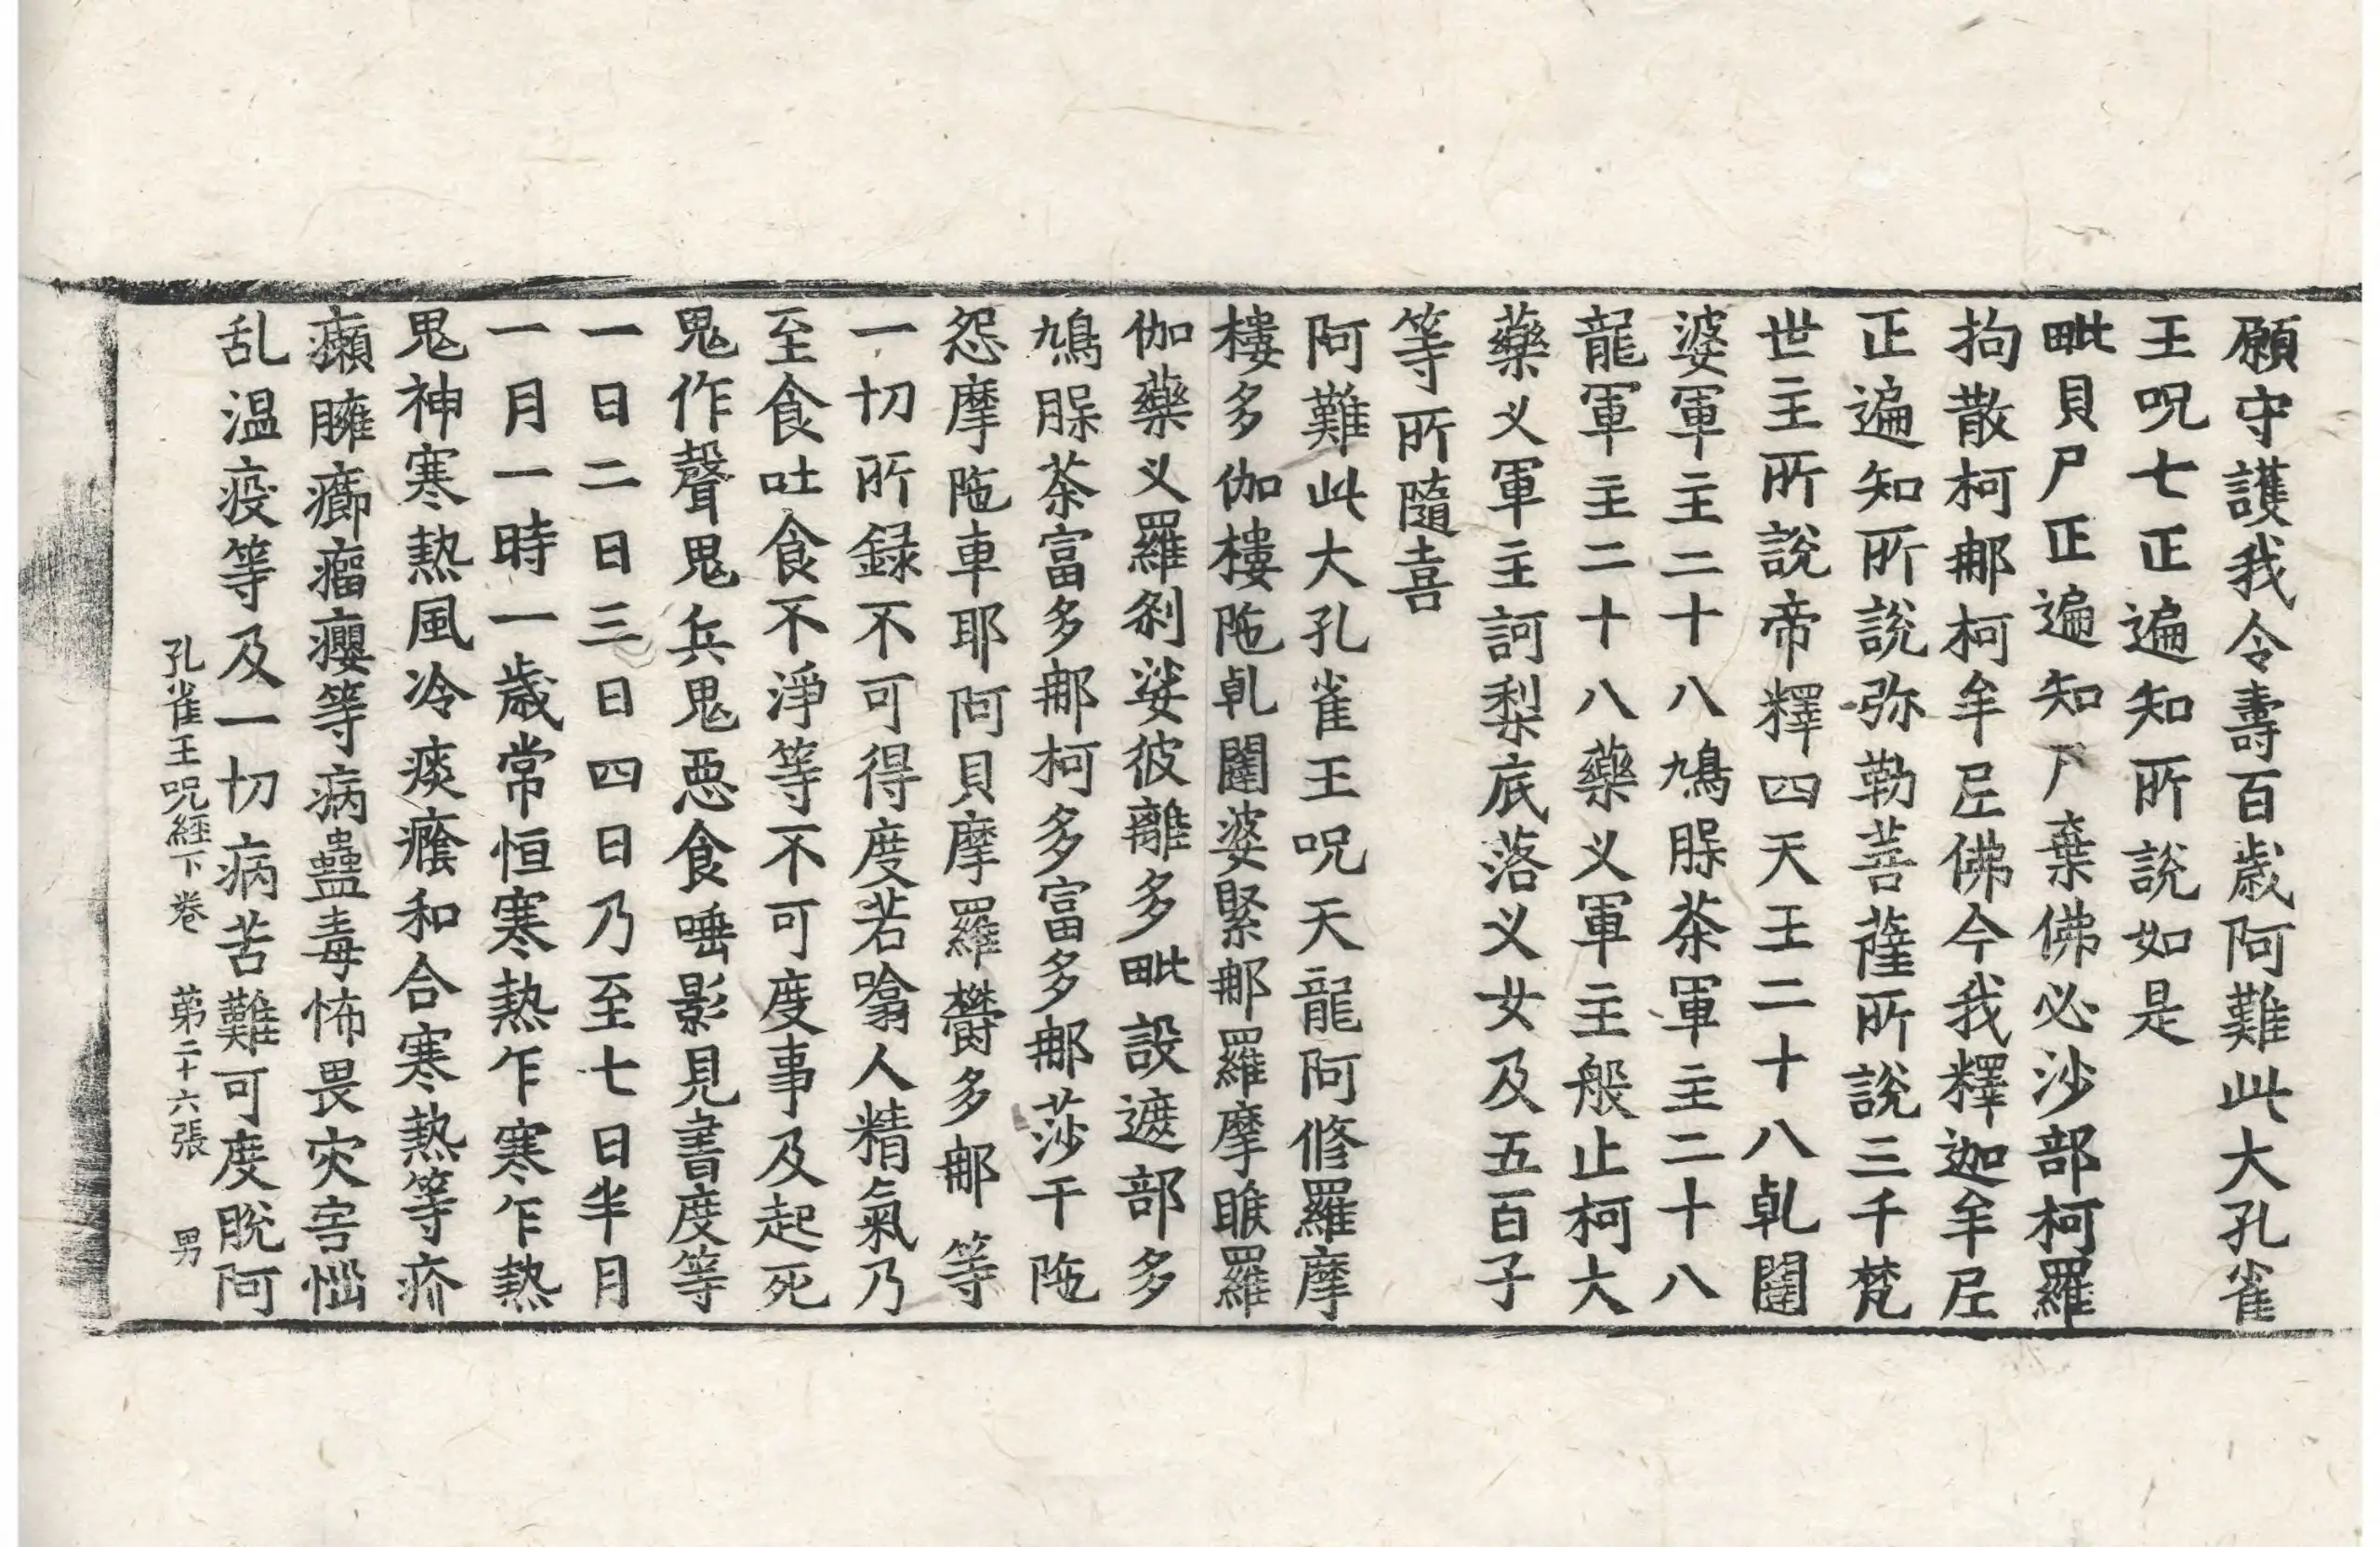 願守護我令壽百歲阿難此大孔雀
王呪七正遍知所說如是
毗貝尸正遍知尸棄佛必沙部柯羅
拘散柯郍柯牟𡰱佛今我釋迦牟𡰱
正遍知所說弥勒菩薩所說三千梵
世主所說帝釋四天王二十八乹闥
婆軍主二十八鳩脲荼軍主二十八
龍軍主二十八藥义軍主般止柯大
藥义軍主訶梨底落义女及五百子
等所隨喜
阿難此大孔雀王呪天龍阿修羅摩
樓多伽樓陁乹闥婆緊郍羅摩睺羅
伽藥义羅刹娑彼離多毗設遮部多
鳩脲荼富多郍柯多富多郍莎干陁
怨摩陁車耶阿貝摩羅欝多郍等
一切所録不可得度若噏人精氣乃
至食吐食不淨等不可度事及起死
鬼作聲鬼兵鬼惡食唾影見書度等
一日二日三日四日乃至七日半月
一月一時一歲常恒寒熱乍寒乍熱
鬼神寒熱風冷痰癊和合寒熱等疥
癩臃癤瘤癭等病蠱毒怖畏灾害惱
乱温疫等及一切病苦難可度脫阿
孔雀王呪經下卷 苐二十六張 男